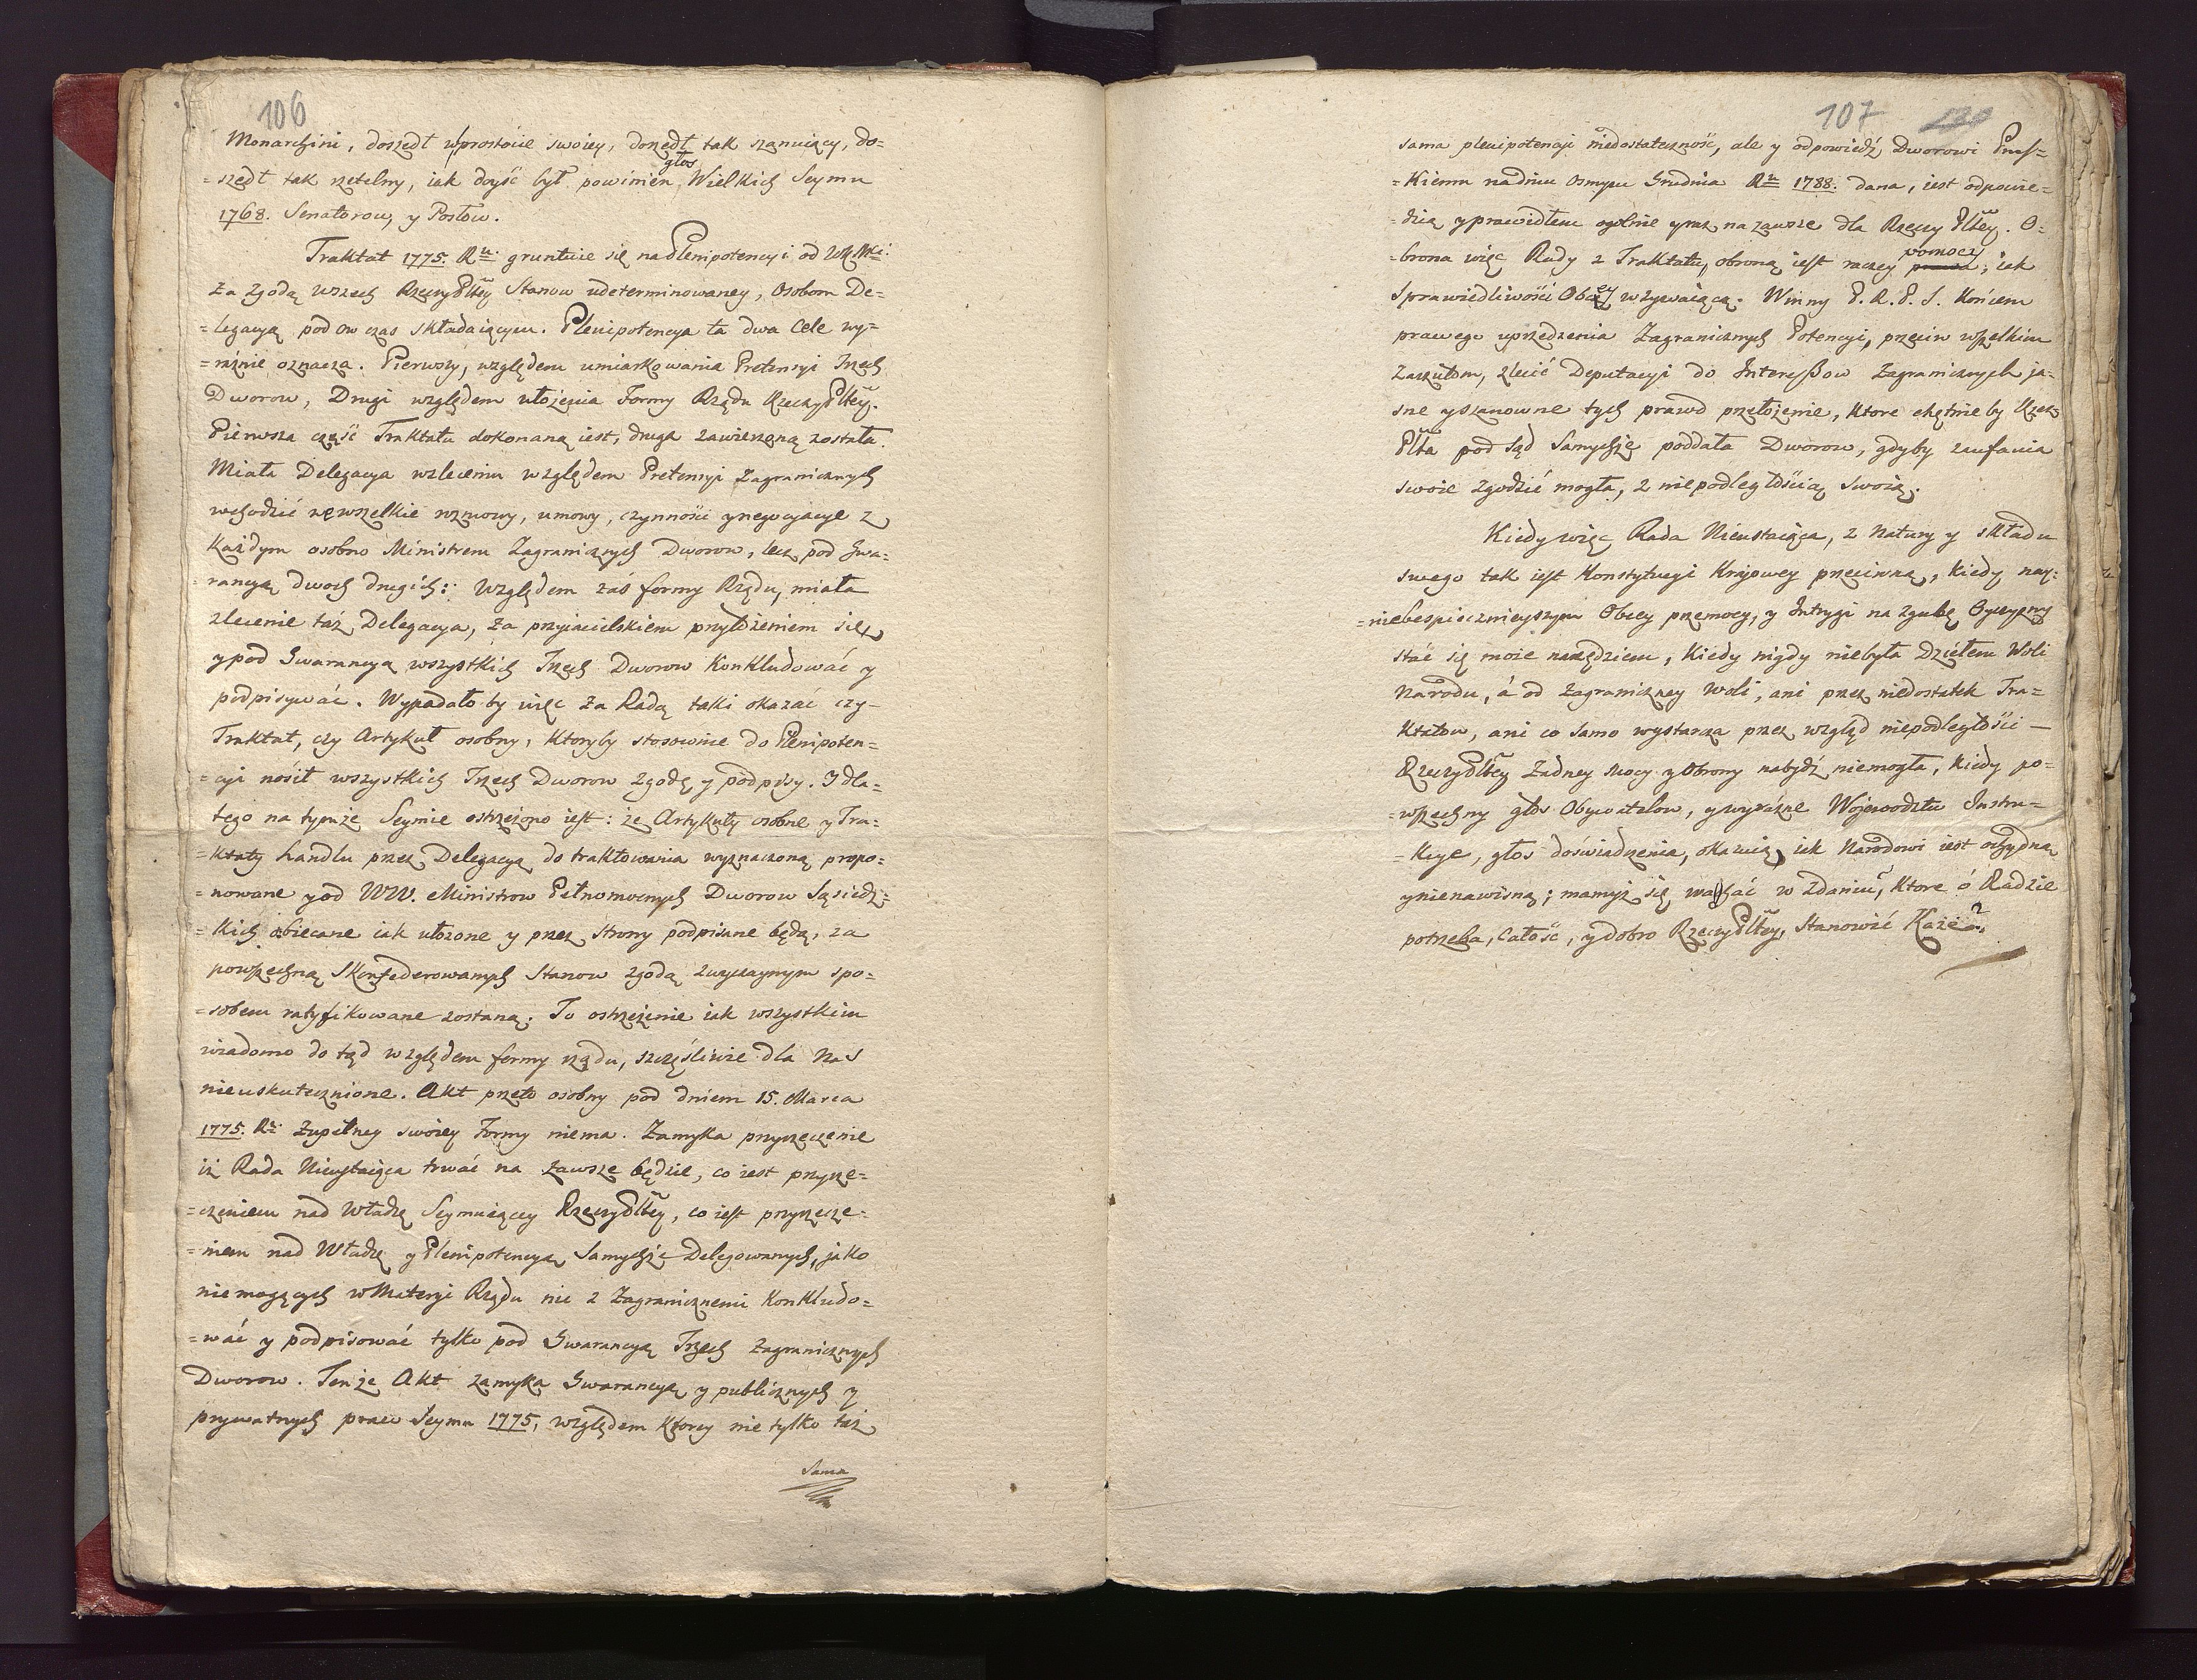 106
Monarchini, doszedł w prostocie swoiey, doszedł tak szanuiący, do=
głos
=szedł tak rzetelny, iak doyść był powinien, Wielkich Seymu
1768. Senatorow, y Posłow.
Traktat 1775. Ru. gruntuie się na Plenipotencyi od
za zgodą wszech RzeczyPltey Stanow udeterminowaney, Osobom De=
=legacyą pod ow czas składaiącym. Plenipotencya ta dwa Cele wy=
=raźnie oznacza. Pierwszy, względem umiarkowania Pretensyi Trzech
Dworow, Drugi względem ułożenia Formy Rządu RzeczyPltey.
Pierwsza część Traktatu dokonaną iest, druga zawieszoną została.
Miała Delegacya w zleceniu względem Pretensyi Zagranicznych
wchodzić we wszelkie rozmowy, umowy, czynności y negocyacye z
Każdym osobno Ministrem Zagranicznych Dworow, lecz pod Gwa=
=rancyą dwoch drugich: Względem zaś formy Rządu, miała
zlecenie taż Delegacya, za przyiacielskiem przyłożeniem się
y pod Gwarancyą wszystkich Trzech Dworow Konkludować y
podpisywać. Wypadało by więc za Radą taki okazać czy=
Traktat, czy Artykuł osobny, Ktoryby stosownie do Plenipoten=
=cyi nosił wszystkich Trzech Dworow zgodę y podpisy. I dla=
tego na tymże Seymie ostrzeżono iest: że Artykuły osobne y Tra=
=ktaty handlu przez Delegacyą do traktowania wyznaczoną propo=
=nowane y od WW. Ministrow Pełnomocnych Dworow Sąsiedz=
=kich obiecane iak ułożone y przez Strony podpisane będą, za
powszechną Skonfederowanych Stanow zgodą zwyczaynym spo=
=sobem ratyfikowane zostaną. To ostrzeżenie iak wszystkim
wiadomo do tąd względem formy rządu, szczęśliwie dla Nas
nieuskutecznione. Akt przeto osobny pod dniem 15. Marca
1775. Ru. Zupełney swoiey Formy niema. Zamyka przyrzeczenie
iż Rada Nieustaiąca trwać na zawsze będzie, co iest przyrze=
=czeniem nad Władzę Seymuiącey RzeczyPltey, co iest przyrzecze=
=niem nad Władzę y Plenipotencyą Samychże Delegowanych, jako
niemogących w Materyi Rządu nic z Zagranicznemi Konkludo=
=wać y podpisować tylko pod Gwarancyą Trzech Zagranicznych
Dworow. Tenże Akt zamyka Gwarancyą y publicznych y
prywatnych praw Seymu 1775, względem Ktorey nie tylko taż
Sama
107 130
sama plenipotencyi niedostateczność, ale y odpowiedź Dworowi Prus=
=Kiemu na dniu Osmym Grudnia Ru 1788. dana, iest odpowie=
=dzią y prawidłem ogolnie y raz na zawsze dla Rzeczy Pltey. O=
pomocy
=brona więc Rady z Traktatu, obroną iest raczey prawa, iak
Sprawiedliwości Obcey wzywaiącą. Winny P. R. P. S. Końcem
prawego uprzedzenia Zagranicznych Potencyi, przeciw wszelkim
Zarzutom, zlecić Deputacyi do Interessow Zagranicznych ja=
sne y szanowne tych prawd przełożenie, Ktore chętnie by Rzecz
Plta pod Sąd Samychże poddała Dworow, gdyby zaufania
swoie zgodzić mogła, z niepodległością Swoią.
Kiedy więc Rada Nieustaiąca, z Natury y składu
swego tak iest Konstytucyi Krajowey przeciwną, Kiedy nay=
=niebespiecznieyszym Obcey przemocy, y Intrygi na zgubę Oyczyzny
stać się może narzędziem, Kiedy nigdy niebyła Dziełem Woli
Narodu, á od Zagraniczney Woli, ani przez niedostatek Tra=
Ktatow, ani co samo wystarcza przez wzgląd niepodległości —
RzeczyPltey Żadney Mocy y Obrony nabydź niemogła, Kiedy po=
=wszechny głos Obywatelow, y wyraźne Wojewodztw Instru=
=Kcye, głos doświadczenia, okazuią, iak Narodowi iest ochydną
y nienawisną; mamyż się wachać w Zdaniu, Ktore ó Radzie
potrzeba, Całość, y dobro RzeczyPltey, Stanowić Każe?